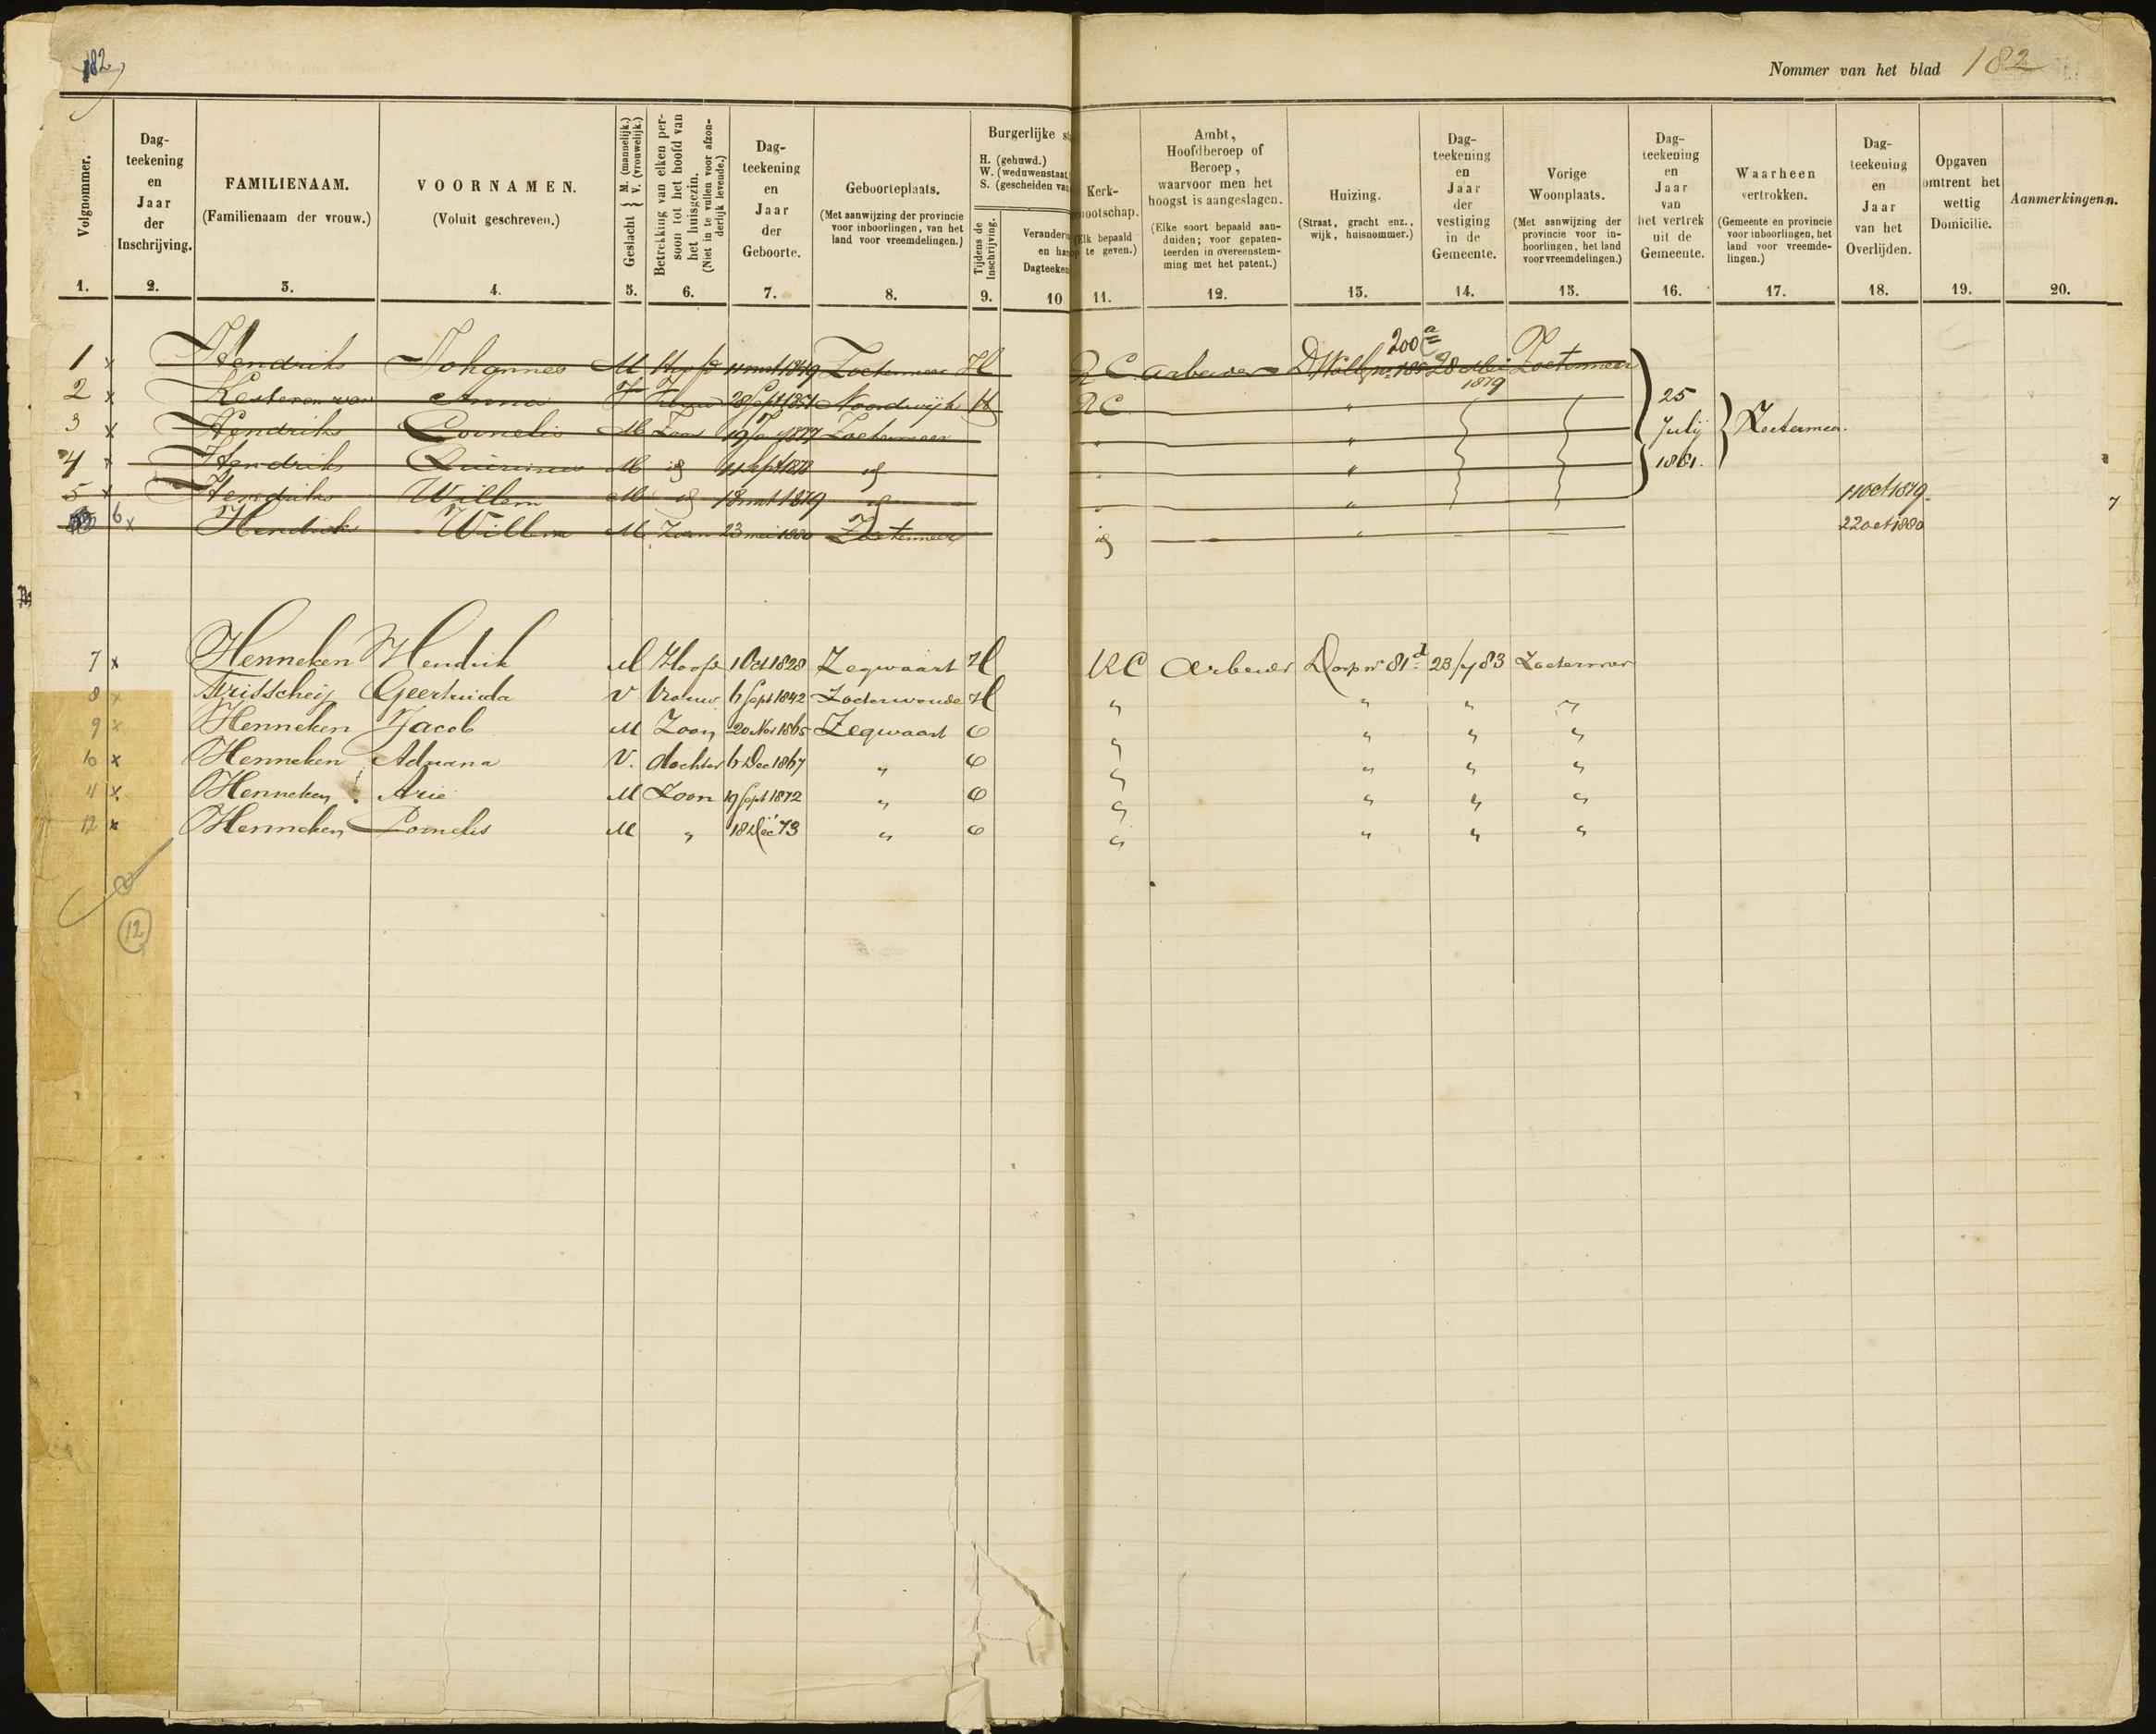 182
Nommer van het blad 182
Volgnommer.
1.
Dag-
teekening
en
Jaar
der
Inschrijving.
2.
FAMILIENAAM.
(Familienaam der vrouw.)
3.
VOORNAMEN.
(Voluit geschreven.)
4.
Geslacht { M. (mannelijk.) V. (vrouwelijk.)
5.
Betrekking van elken per-
soon tot het hoofd van
het huisgezin.
(Niet in te vullen voor afzon-
derlijk levende.)
6.
Dag-
teekening
en
Jaar
der
Geboorte.
7.
Geboorteplaats.
(Met aanwijzing der provincie
voor inboorlingen, van het
land voor vreemdelingen.)
8.
Burgerlijke st
H. (gehuwd.)
W. (weduwenstaat
S. (gescheiden van
Tijdens de
Inschrijving.
9.
Verander
en ha
Dagteeken
10
Kerk-
nootschap.
(Elk bepaald
op te geven.)
11.
Ambt,
Hoofdberoep of
Beroep,
waarvoor men het
hoogst is aangeslagen.
(Elke soort bepaald aan-
duiden; voor gepaten-
teerden in overeenstem-
ming met het patent.)
12.
Huizing.
(Straat, gracht enz.,
wijk, huisnommer.)
13.
Dag-
teekening
en
Jaar
der
vestiging
in de
Gemeente.
14.
Vorige
Woonplaats.
(Met aanwijzing der
provincie voor in-
boorlingen, het land
voor vreemdelingen.)
15.
Dag-
teekening
en
Jaar
van
het vertrek
uit de
Gemeente.
16.
Waarheen
vertrokken.
(Gemeente en provincie
voor inboorlingen, het
land voor vreemde-
lingen.)
17.
Dag-
teekening
en
Jaar
van het
Overlijden.
18.
Opgaven
omtrent het
wettig
Domicilie.
19.
Aanmerkingen.
20.
200 a
1 x Hendriks Johannes M Hoofd 11 mrt 1849 Zoetermeer H RC arbeider 28 Mei 1879 Zoetermeer
2 x Kesteren van Anna V Vrouw 28 Sept 1851 Noordwijk H RC " 25
3 x Hendriks Cornelis M Zoon 19 1877 Zoetermeer " " Julij Zoetermeer.
4 x Hendriks Quirinus M id 11 Sept 1878 id " " 1881.
5 x Hendriks Willem M id 18 mrt 1879 id " " 11 oct 1879
6 x Hendriks Willem M Zoon 23 mei 1880 Zoetermeer id " 22 oct 1880
7 x Henneken Hendrik M Hoofd 1 Oct 1828 Zegwaart H RC Arbeider Dorp no 81 d 23/4 83 Zoetermeer
8 x Frisscheij Geertruida V Vrouw 6 Sept 1842 Zoeterwoude H " " " "
9 x Henneken Jacob M Zoon 20 Nov 1865 Zegwaart O " " " "
10 x Henneken Adriana V. dochter 6 Dec 1867 " O " " " "
11 x Henneken Arie M Zoon 19 Sept 1872 " O " " " "
12 x Henneken Cornelis M " 18 Dec 73 " O " " " "
12